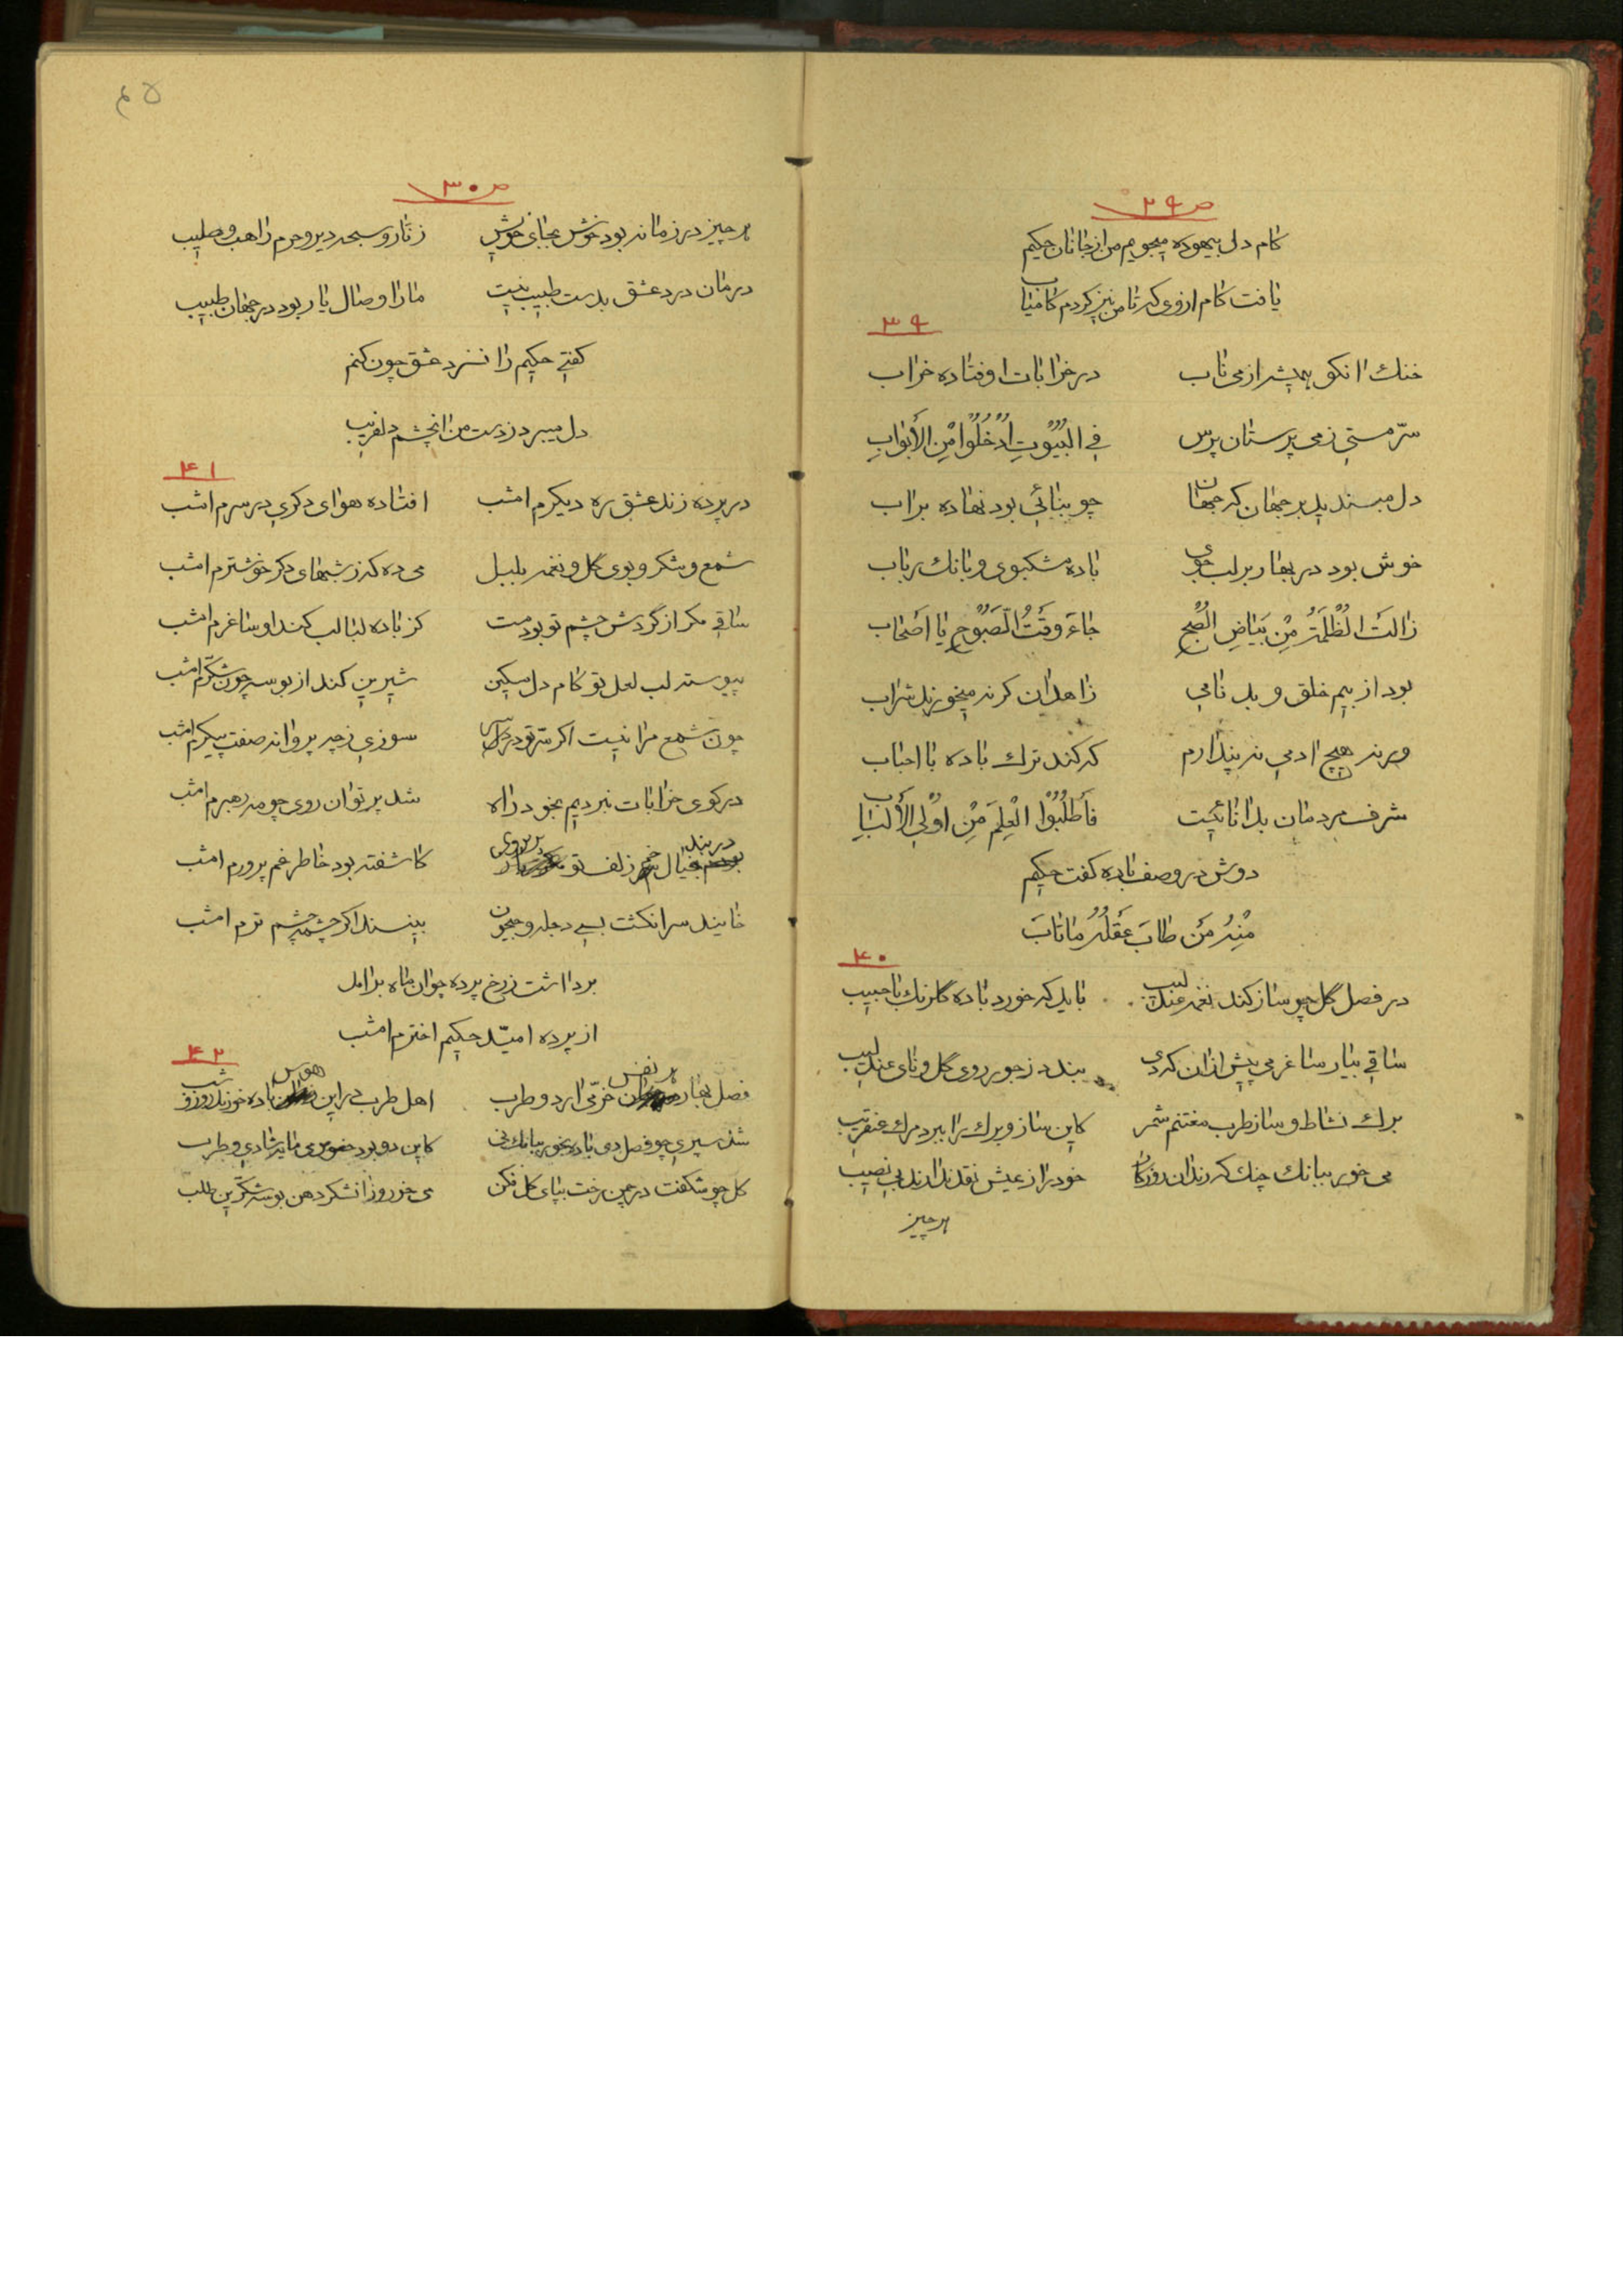 ص ۲۹
کام دل بیهوده میجویم من از جانان حکیم
یافت کام از وی که تا من نیز کردم کامیاب
۳۹
خنک انکو همیشه از می ناب در خرابات اوفتاده خراب
سرّ مستی ز می پرستان پرس فِی البُیُوتِ ادْخُلُوا مِنَ الأَبْوابِ
دل مبندید بر جهان که جهان چو بنائی بود نهاده بر اب
خوش بود در بهار بر لب جوی باده مشکبوی و بانک رباب
زالَتَ الظُلْمَةُ مِنْ بَیَاضِ الصُبْحِ جاءَ وَقْتُ الصَبُوحِ یا اَصْحاب
بود از بیم خلق و بد نامی زاهدان کر نه میخورند شراب
ور نه هیچ ادمی نه پندارم که کند ترک باده با احباب
شرف مردمان بدانائیست فَاطْلُبُوا الْعِلْمَ مِنْ اُولِی الأَلْبَابِ
دوش در وصف باده کفت حکیم
مِنْهُ مَن طابَ عَقْلُهُ ماتابَ
۴۰
در فصل گل چو ساز کند نغمه عندلیب باید که خورد باده گلرنک با حبیب
ساقی بیار ساغر می پیش ازان که دی بندد ز جور روی گل و نای عندلیب
برک نشاط و ساز طرب مغتنم شمر کاین ساز و برک را ببرد مرک عنقریب
می خور ببانک چنک که رندان روزکار خود را از عیش نقد ندارند بی نصیب
هر چیز
۴۵
ص ۳۰
هر چیز در زمانه بود خوش بجای خویش زنّار و سبحه دیر و حرم راهب و صلیب
درمان درد عشق بدست طبیب نیست ما را وصال یار بود در جهان طبیب
کفتی حکیم را نسزد عشق چون کنم
دل میبرد ز دست من انچشم دلفریب
۴۱
در پرده زند عشق ره دیکرم امشب افتاده هوای دکری در سرم امشب
شمع و شکر و بوی گل و نغمه بلبل می ده که ز شبهای دکر خوشترم امشب
ساقی مکر از گردش چشم تو بود مست کز باده لبالب کند او ساغرم امشب
پیوسته لب لعل تو کام دل مسکین شیرین کند از بوسه چون شکّرم امشب
چون شمع مرا نیست اکر سرّ تو در سر سوزی ز چه پروانه صفت پیکرم امشب
در کوی خرابات نبردیم بخود راه شد پرتو ان روی چو مه رهبرم امشب
در بند خیال خم زلف تو کاشفته بود خاطر غم پرورم امشب
خایند سر انکشت بسی دجله و جیحون بینند اکر چشمه چشم ترم امشب
برداشت ز رخ پرده چو ان ماه بر امد
از پرده امیّد حکیم اخترم امشب
۴۲
فصل بهار هر نفس خرّمی ارد و طرب اهل طرب در این هوس باده خورند روز و شب
شد سپری چو فصل دی باده بخور ببانک نی کاین دو بود حضور می مایه شادی و طرب
کل چو شکفت در چمن رخت بپای کل فکن می خور و زان شکر دهن بوسه شکّرین طلب